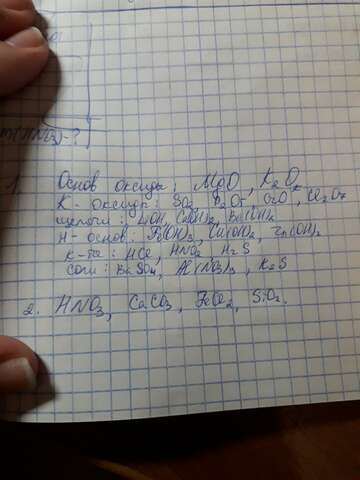 m(HNO3)-?
1. Основ оксиды: MgO, K2O,
К-оксиды: SO2, P2O5, CrO, Cl2O7
щелочи: LiOH, Ca(OH)2, Ba(OH)2
Н-основ: Fe(OH)3, Cu(OH)2, Zn(OH)2
к-та: HCl, HNO2, H2S
соли: BaSO4, Al(NO3)3, K2S
2. HNO3, CaCO3, FeCl2, SiO2.